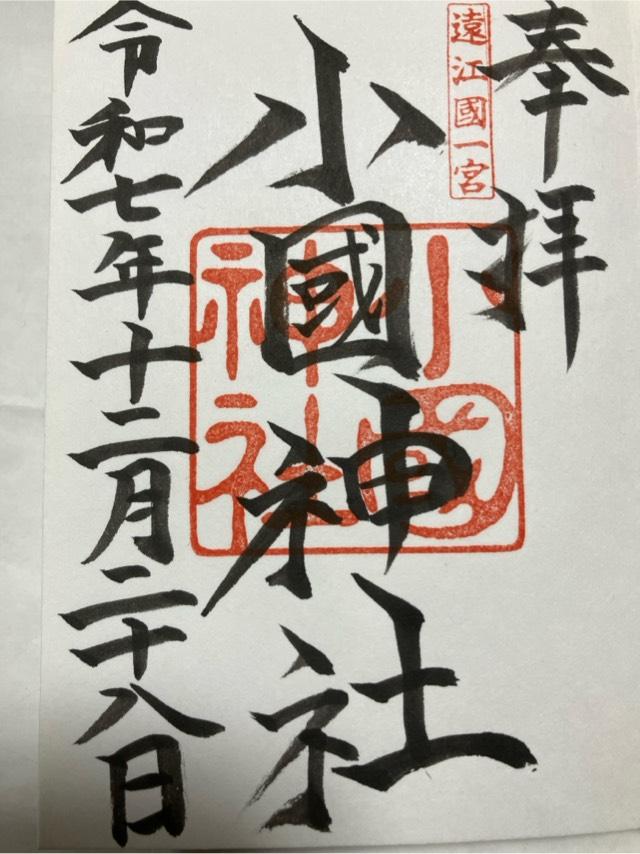 奉拝
遠江國一宮
小國神社
小國神社
令和七年十二月二十八日